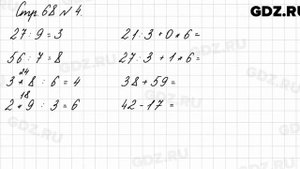 GDZ.RU
Стр. 68 № 4.
27 : 9 = 3
56 : 7 = 8
24
3 * 8 : 6 = 4
18
2 * 9 : 3 = 6
21 : 3 + 0 * 6 =
27 : 3 + 1 * 6 =
38 + 59 =
42 - 17 =